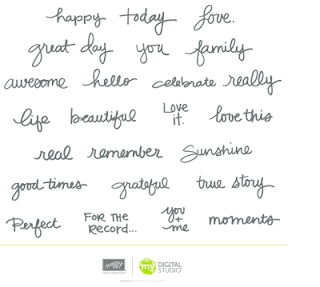 happy today love.
great day you family
awesome hello celebrate really
life beautiful Love it. love this
real remember Sunshine
good times grateful true story
Perfect FOR THE RECORD... you + me moments
my DIGITAL STUDIO